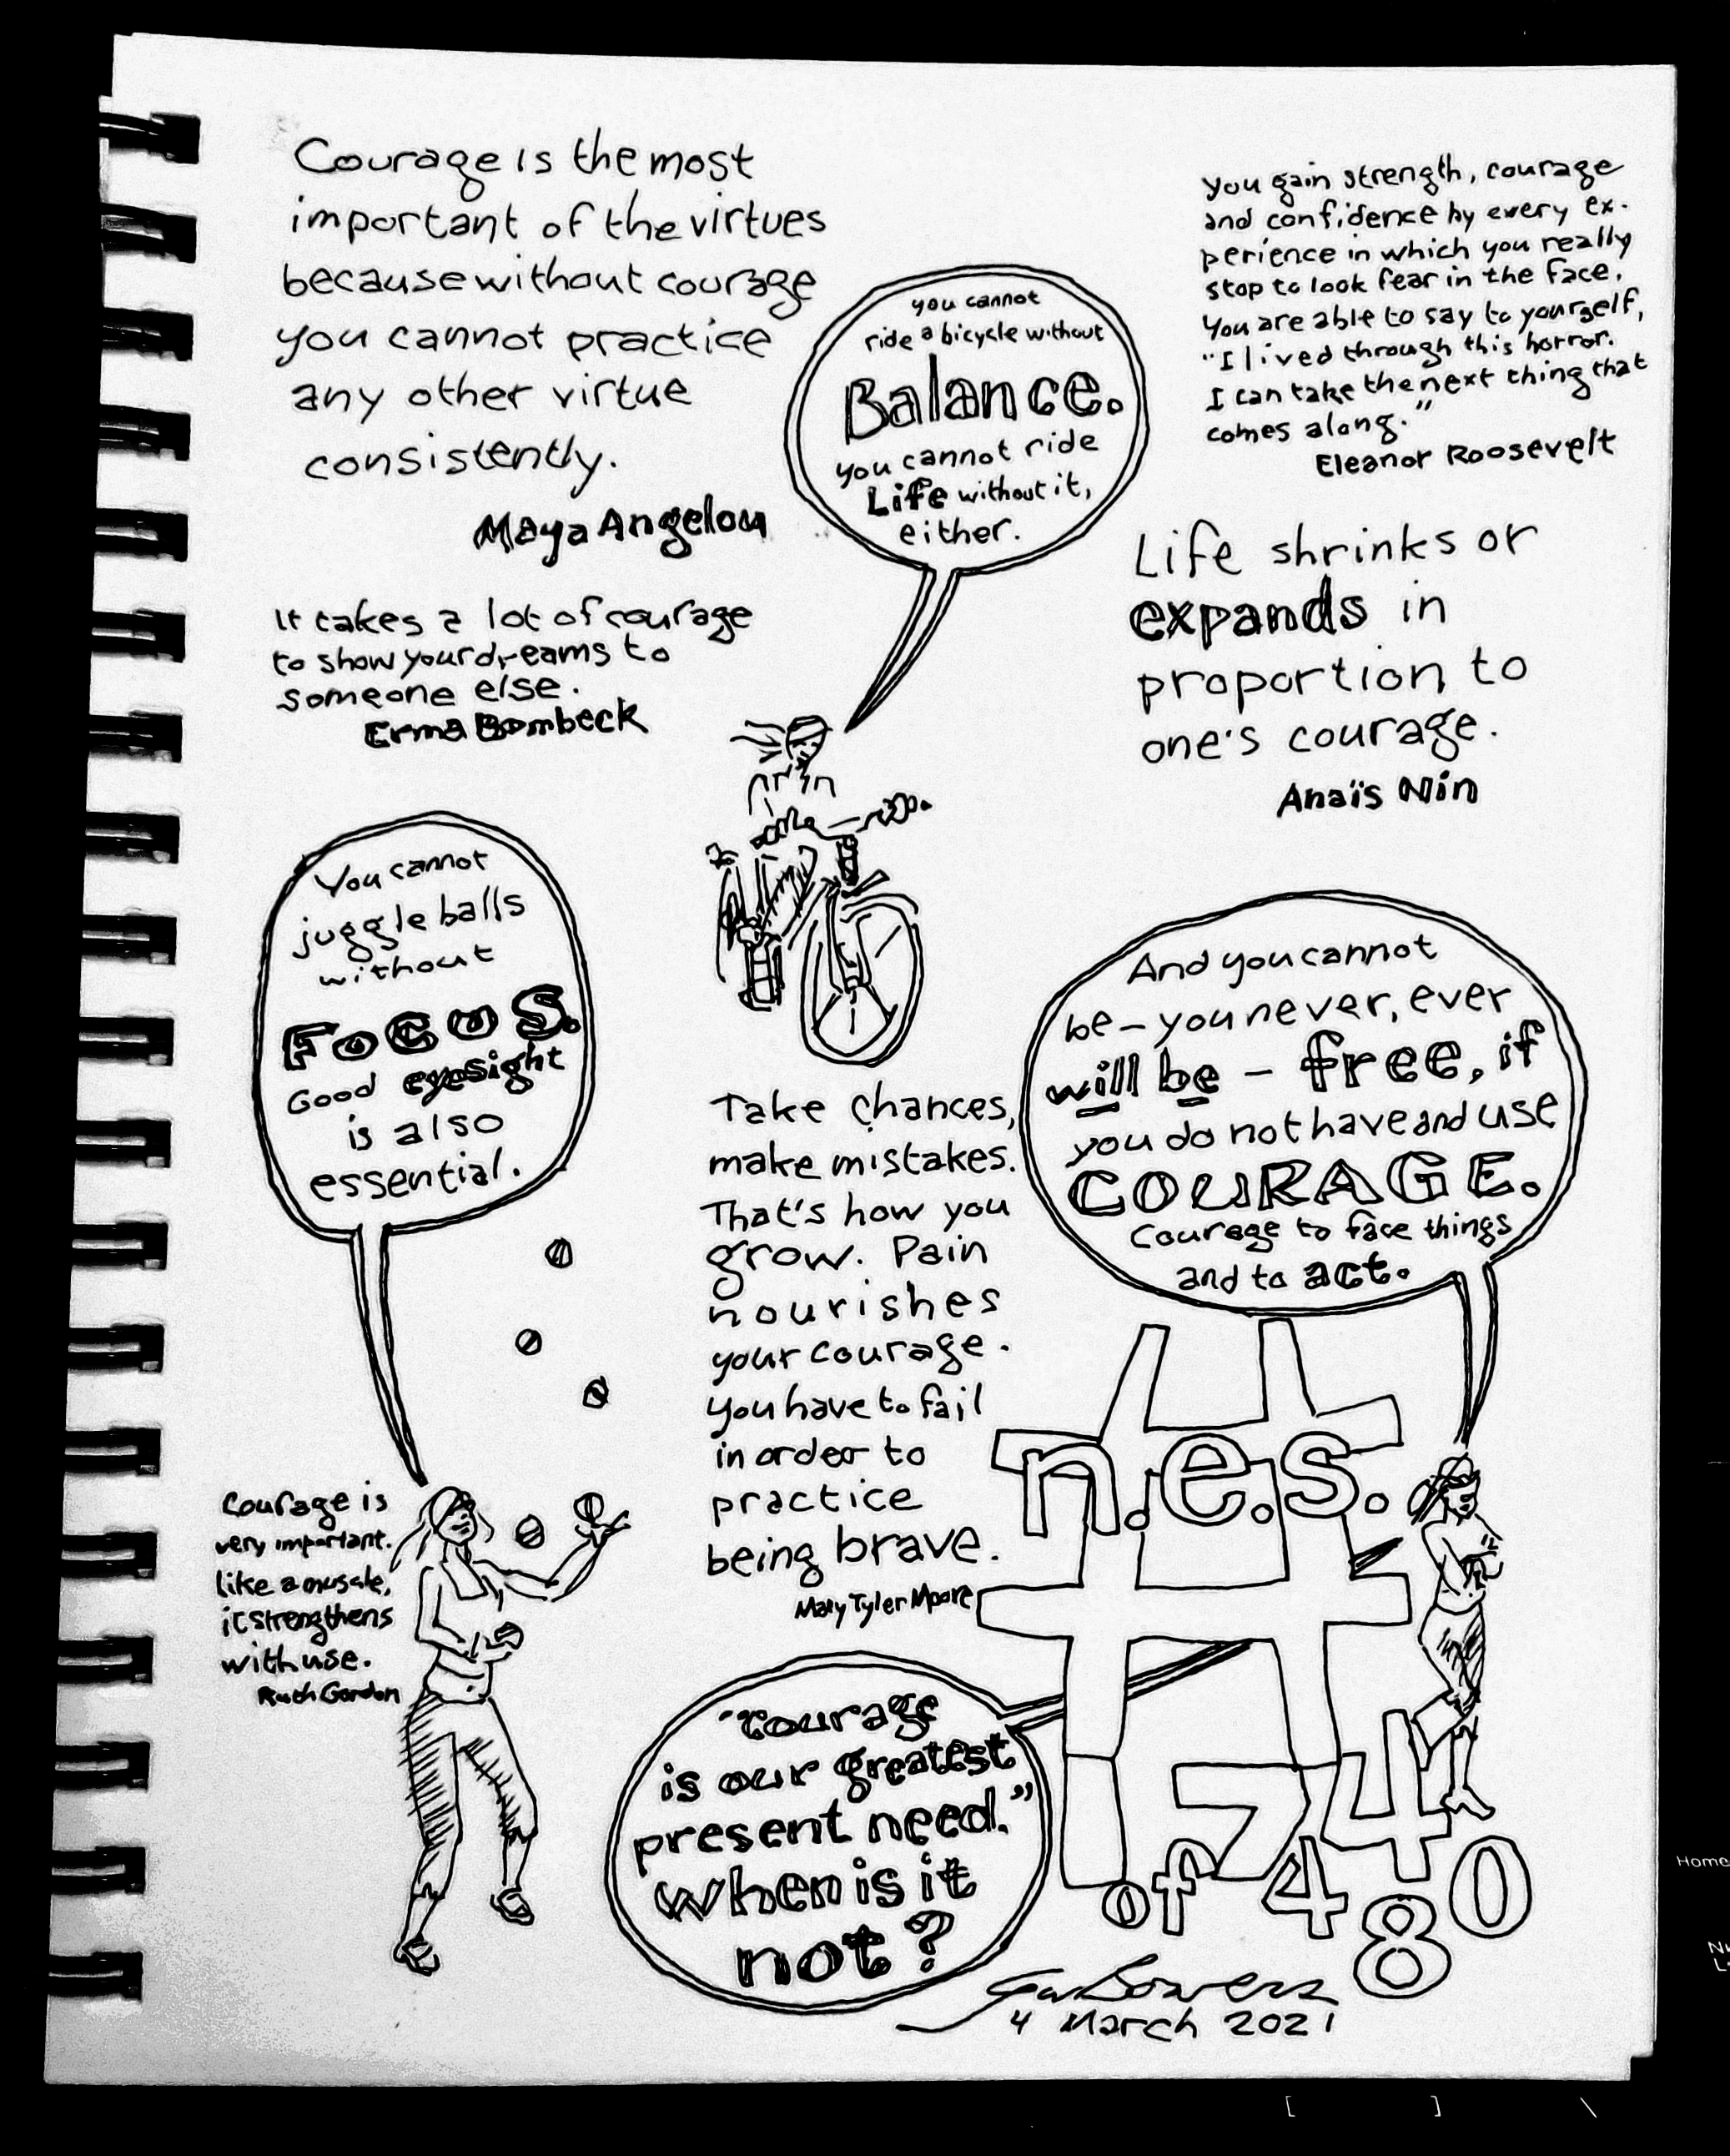 Courage is the most
important of the virtues
because without courage
you cannot practice
any other virtue
consistently.
Maya Angelou
you cannot
ride a bicycle without
Balance.
you cannot ride
Life without it,
either.
You gain strength, courage
and confidence by every ex-
perience in which you really
stop to look fear in the face.
You are able to say to yourself,
"I lived through this horror.
I can take the next thing that
comes along."
Eleanor Roosevelt
It takes a lot of courage
to show your dreams to
someone else.
Erma Bombeck
Life shrinks or
expands in
proportion to
one's courage.
Anaïs Nin
You cannot
juggle balls
without
Focus.
Good eyesight
is also
essential.
And you cannot
be - you never, ever
will be - free, if
you do not have and use
COURAGE.
Courage to face things
and to act.
Take chances,
make mistakes.
That's how you
grow. Pain
nourishes
your courage.
You have to fail
in order to
practice
being brave.
Mary Tyler Moore
Courage is
very important.
like a muscle,
it strengthens
with use.
Ruth Gordon
"Courage
is our greatest
present need."
when is it
not?
n.e.s.
#
74
of 480
4 March 2021
Home
[ ] \